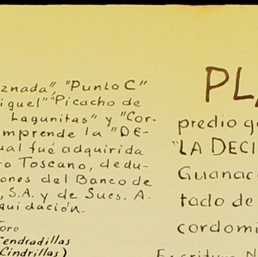 znada", "Punto C"
iguel" "Picacho de
Lagunitas" y "Cor-
mprende la "DE-
ual fué adquirida
ro Toscano, dedu-
ones del Banco de
, S.A. y de Sucs. A.
quidación.
oro
Cendradillas
Cindrillas)
PLA
predio g
"LA DECI
Guanac
tado de
cordomi